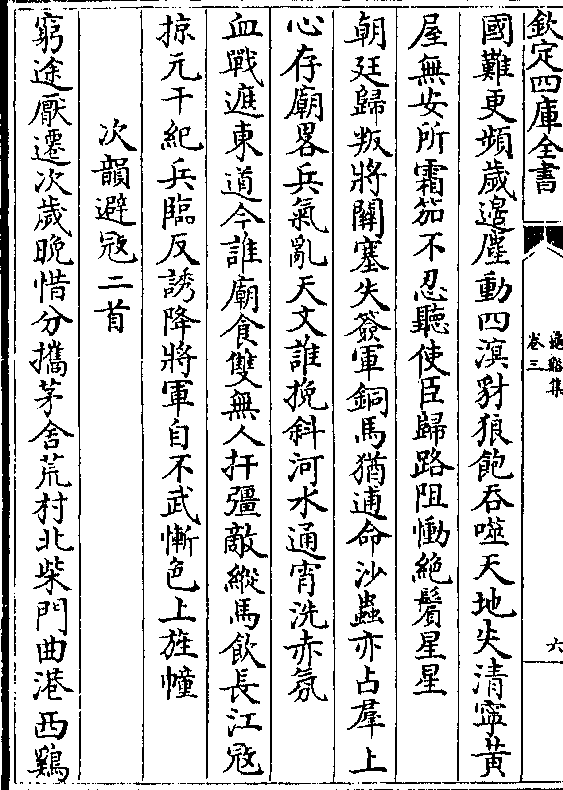 欽定四庫全書
澹齋集
卷三
六
國難更頻歲邊塵動四溟豺狼飽吞噬天地失清寧黄
屋無安所霜笳不忍聽使臣歸路阻慟絶鬢星星
朝廷歸叛將關塞失簽軍銅馬猶逋命沙蟲亦占羣上
心存廟畧兵氣亂天文誰挽斜河水通宵洗赤氛
血戰遮東道今誰廟食雙無人扞彊敵縱馬飲長江宼
掠元干紀兵臨反誘降將軍自不武慚色上旌幢
次韻避宼二首
窮途厭遷次歲晚惜分攜茅舍荒村北柴門曲港西鷄